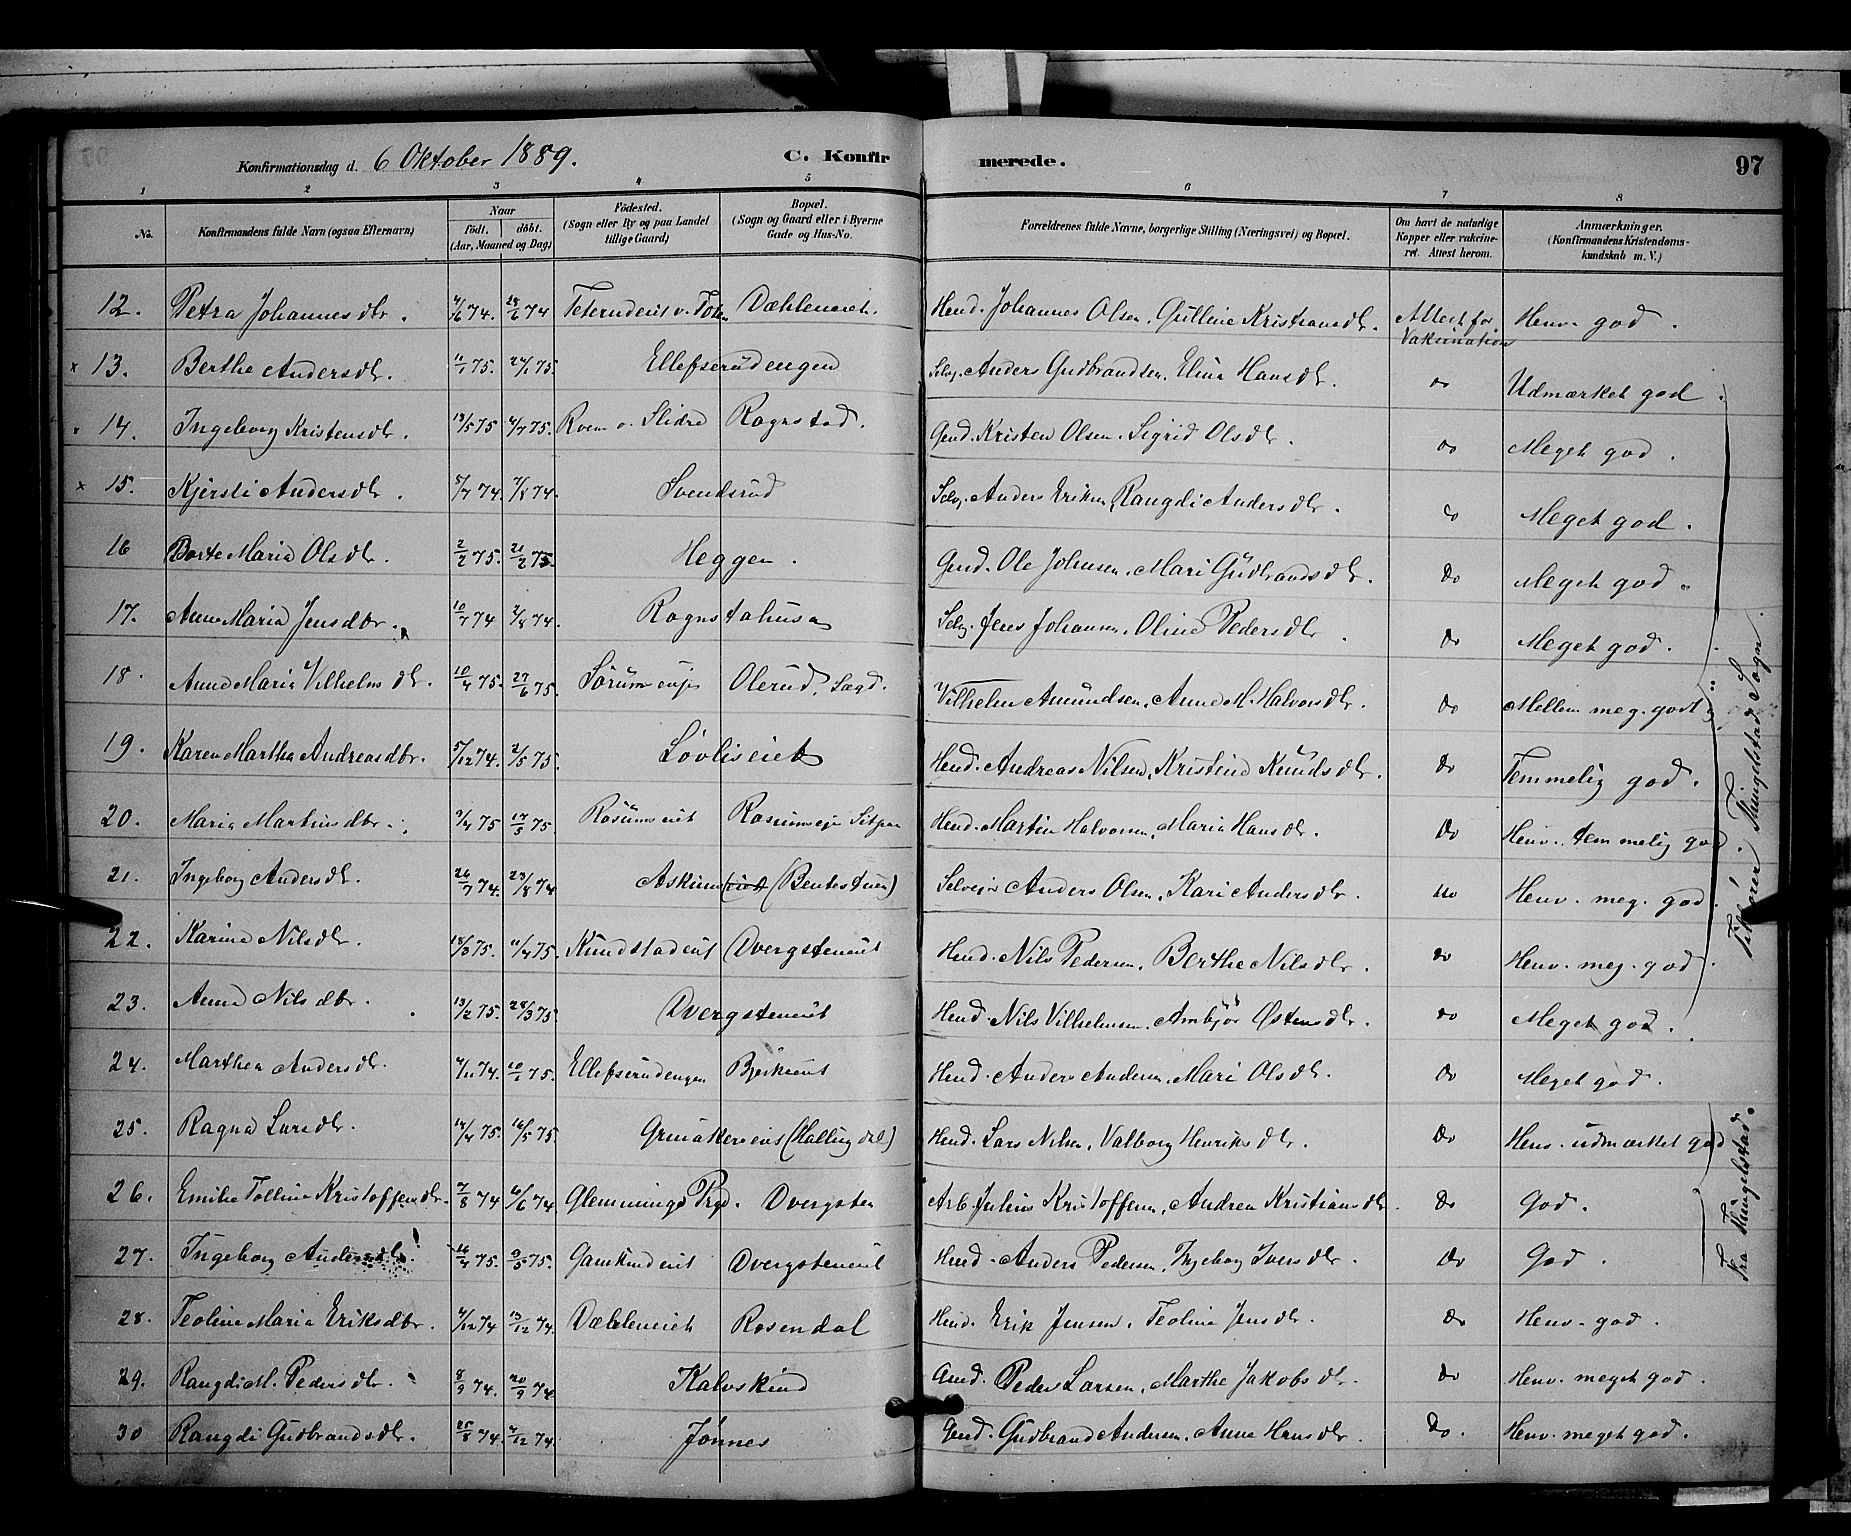 Konfirmationsdag d. 6 Oktober 1889. C. Konfirmerede. 97
1 2 3 4 5 6 7 8
No. Konfirmandens fulde Navn (ogsaa Efternavn) Naar født. døbt. (Aar, Maaned og Dag) Fødested. (Sogn eller By og paa Landet tillige Gaard) Bopæl. (Sogn og Gaard eller i Byerne Gade og Hus-No. Forældrenes fulde Navne, borgerlige Stilling (Næringsvei) og Bopæl. Om havt de naturlige Kopper eller vakcineret. Attest herom. Anmærkninger. (Konfirmandens Kristendomskundskab m. V.)
12. Petra Johannesdtr. 4/6 74. 28/6 74 Dæhleneiet. Hend. Johannes Olsen, Gulline Kristiansdtr. Attest for Vaksination Henv. god.
13. Berthe Andersdtr. 11/1 75. 24/1 75. Ellefserudengen Selvj. Anders Gudbrandsen, Eline Hansdtr. do Udmærket god
14. Ingeborg Kristensdtr. 13/5 75 4/7 75. Slidre Rognstad. Gmd. Kristen Olsen, Sigrid Olsdtr. do Meget god.
15. Kjersti Andersdtr. 5/7 74. 7/8 74. Svendsrud Selvj. Anders Eriksen, Rangdi Andersdtr. do Meget god.
16 Borte Maria Olsdtr. 2/2 75. 21/2 75. Heggen. Gmd. Ole Johnsen, Mari Gudbrandsdtr. do Meget god.
17. Anne Maria Jensdtr. 10/7 74 2/8 74. Rognstahusa Selvj. Jens Johansen, Oline Pedersdtr. do Meget god.
18. Anne Maria Vilhelmsdtr. 10/4 75. 27/6 75. Sørumseije Olerud, Søgd. Vilhelm Amundsen, Anne M. Halvorsdtr. do Mellem meg. godt
19. Karen Marthea Andreasdtr. 5/12 74. 2/5 75. Løvliseiet Hend. Andreas Nilsen, Kristine Knudsdtr. do Temmelig god.
20. Maria Martinsdtr. 9/4 75 17/5 75. Rosumseiet Rosumseje Hend. Martin Halvorsen, Maria Hansdtr. do Henv. temmelig god.
21. Ingeborg Andersdtr. 26/7 74. 23/8 74 Askim (Bentestuen) Selveier Anders Olsen, Kari Andersdtr. do Henv. meg. god.
22. Karine Nilsdtr. 18/3 75. 11/4 75. Kundstadeiet Dvergsteneiet Hend. Nils Pedersen, Berthe Nilsdtr. do Henv. meg. god.
23. Anne Nilsdtr. 13/2 75. 28/3 75. Dvergsteneiet Hend. Nils Vilhelmsen, Ambjør Østensdtr. do Meget god.
24. Marthea Andersdtr. 4/11 74. 10/1 75. Ellefserudengen Bjerkeeiet Hend. Anders Andersen, Mari Olsdtr. do Meget god.
25. Ragna Larsdtr. 14/4 75. 16/5 75. Grinakerseiet (Hallingdal) Hend. Lars Nilsen, Valborg Henriksdtr. do Henv. udmærket god
26. Emilie Tolline Kristoffersdtr. 7/8 74 Glemminge Prgd. Dvergsten Arb. Julius Kristoffersen, Andrea Kristiansdtr. do God.
27. Ingeborg Andersdtr. 26/4 75. 9/5 75. Gamkindeiet Dvergsteneiet Hend. Anders Pedersen, Ingeborg Iversdtr. do God.
28. Teoline Maria Eriksdtr. 4/12 74 13/12 74. Dæhleneiet Rosendal Hend. Erik Jensen, Teoline Jensdtr. do Henv. god.
29. Rangdi M. Pedersdtr. 8/9 74. 20/9 74. Kalvskind Gmd. Peder Larsen, Marthe Jakobsdtr. do Henv. meget god.
30 Rangdi Gudbrandsdtr. 25/8 74. 4/12 74. Jønnes Gmd. Gudbrand Andersen, Anne Hansdtr. Do. Henv. meget god.
Tilhører Tingelstad Sogn.
Fra Tingelstad.